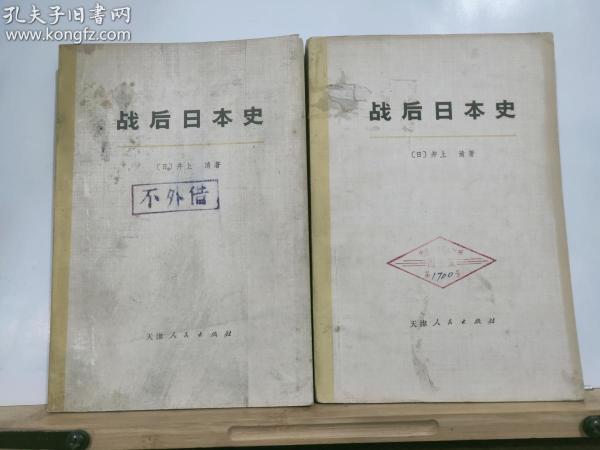 孔夫子旧书网
www.kongfz.com
战后日本史
〔日〕井上 清著
不外借
天津人民出版社
战后日本史
〔日〕井上 清著
第1700号
天津人民出版社